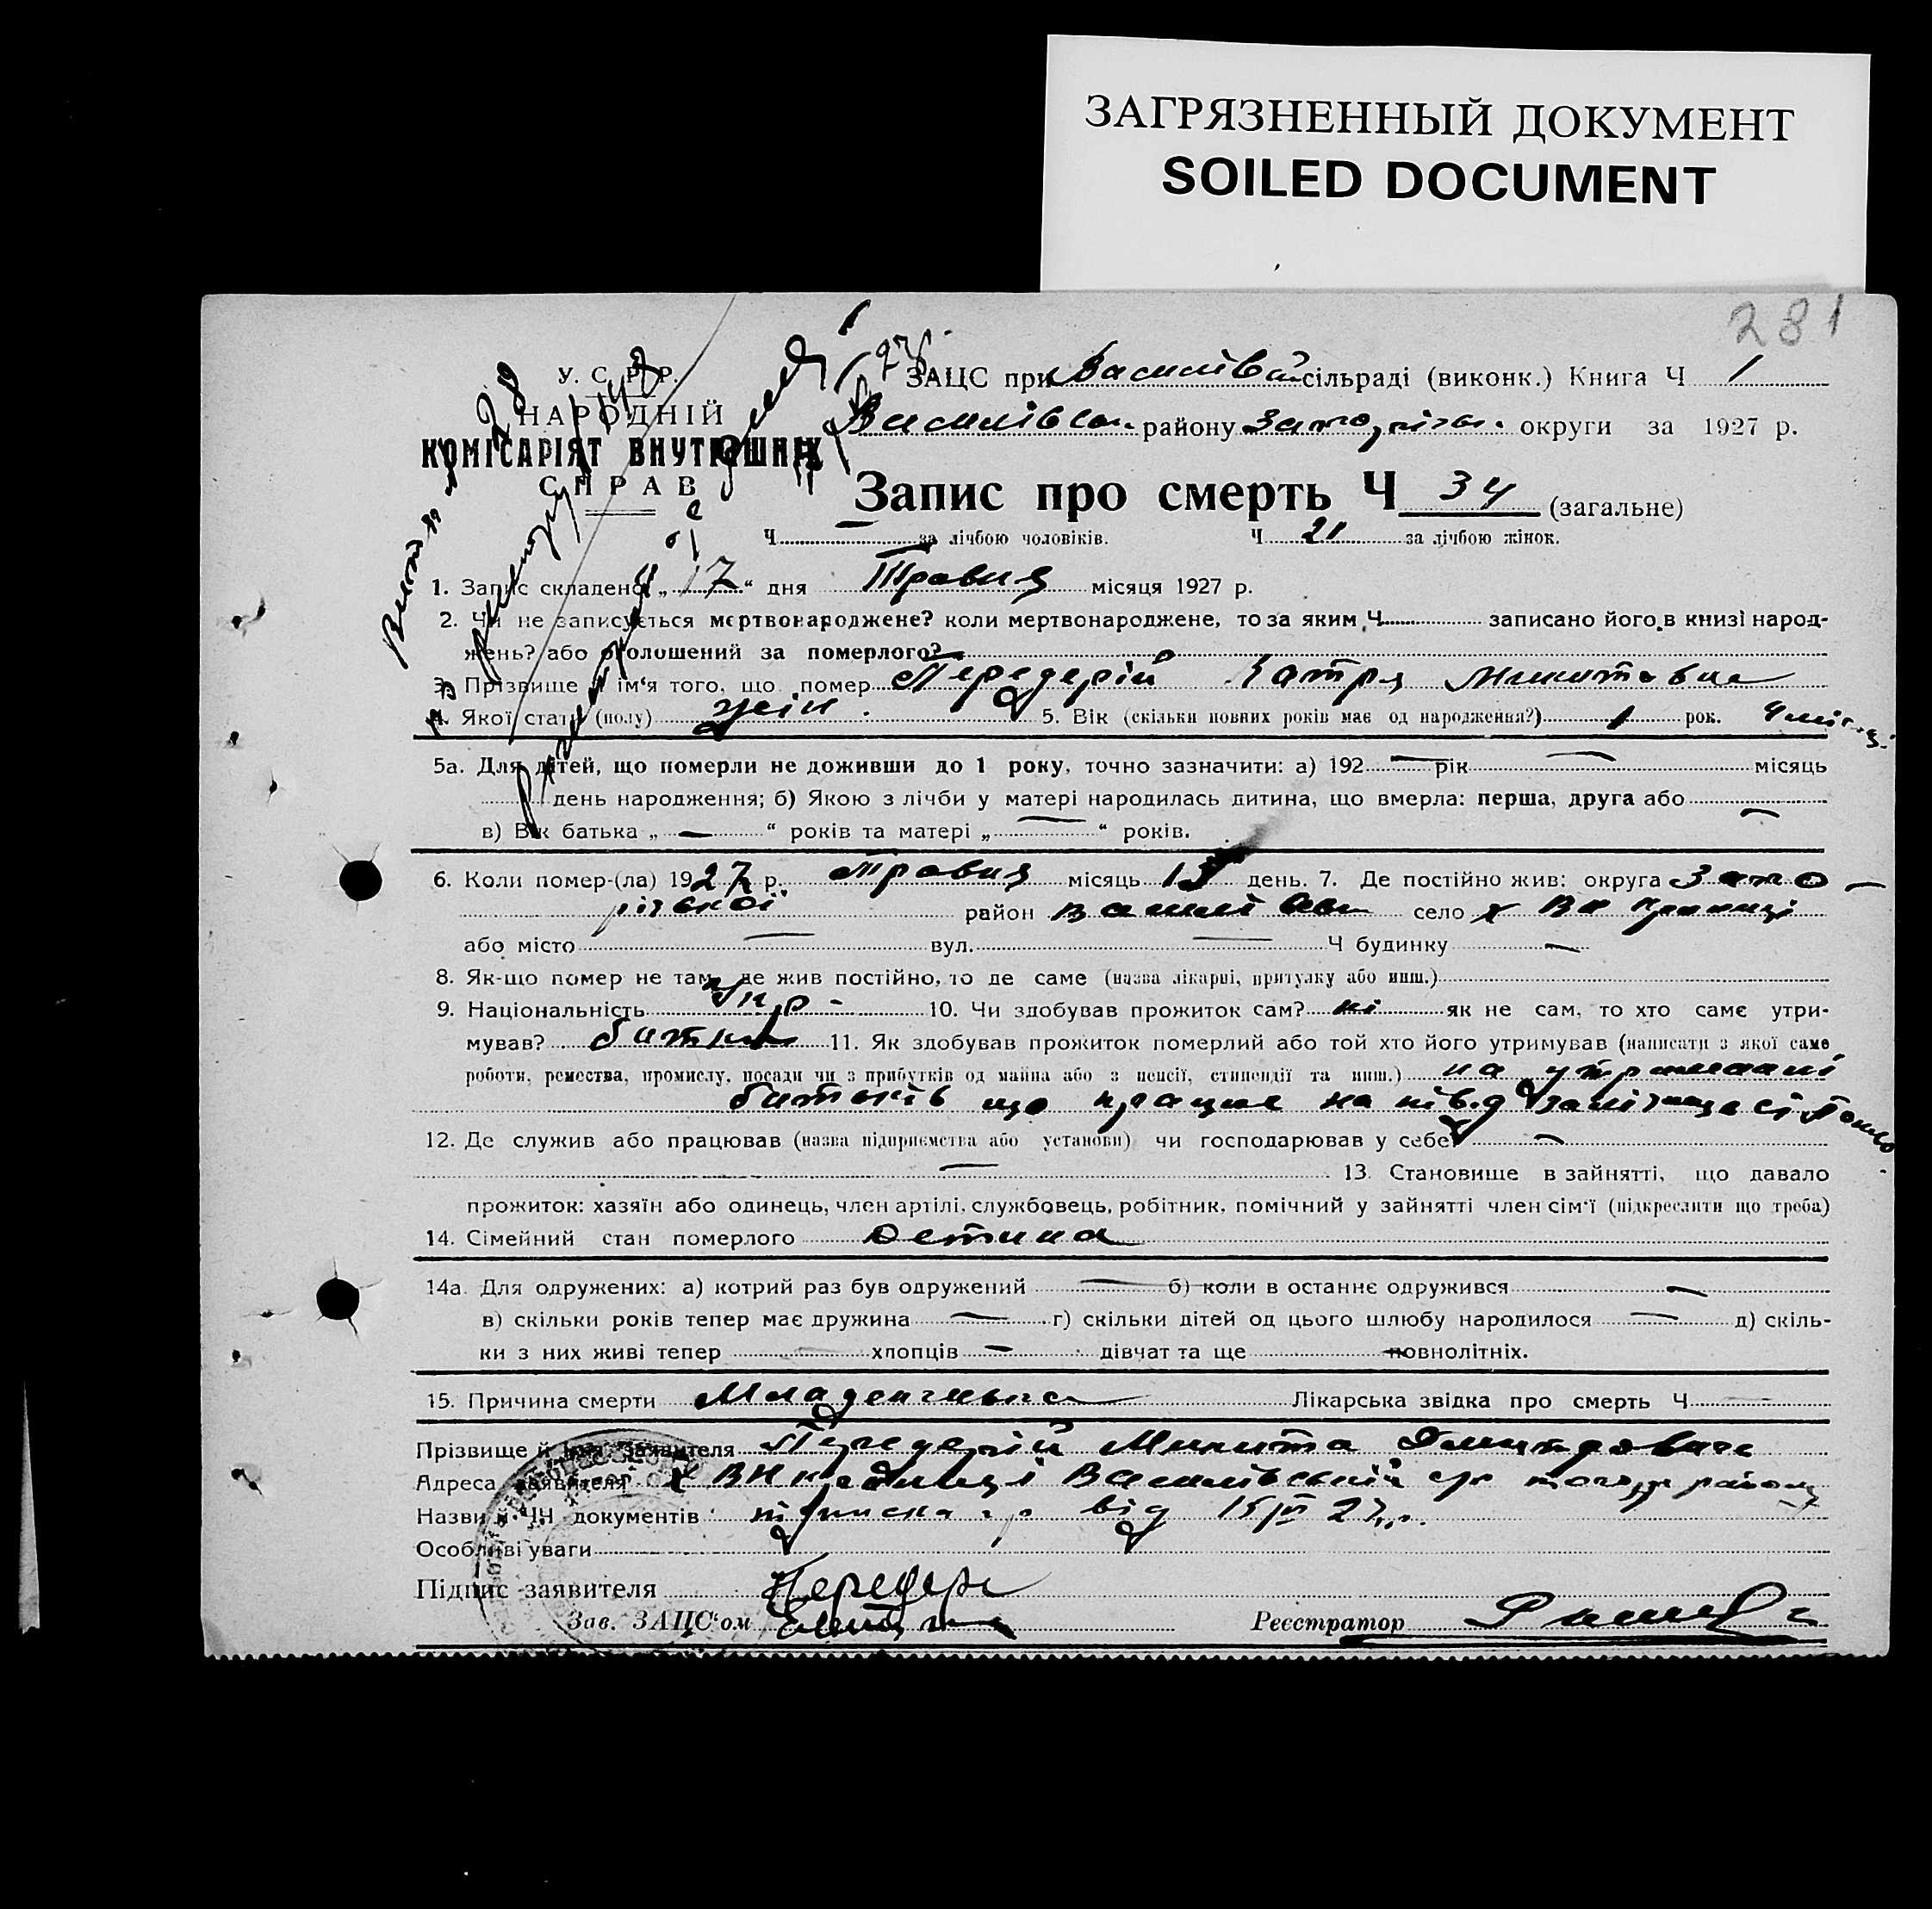 ЗАГРЯЗНЕННЫЙ ДОКУМЕНТ
SOILED DOCUMENT
281
У. С. Р. Р.
НАРОДНІЙ
КОМІСАРІЯТ ВНУТРІШНІХ
СПРАВ
ЗАЦС при Василівській сільраді (виконк.) Книга Ч 1
Василівськ. району Запорізьк. округи за 1927 р.
Запис про смерть Ч 34 (загальне)
Ч — за лічбою чоловіків. Ч 21 за лічбою жінок.
1. Запис складено „17“ дня Травня місяця 1927 р.
2. Чи не записується мертвонароджене? коли мертвонароджене, то за яким Ч записано його в книзі народ-
жень? або оголошений за померлого? —
3. Прізвище й ім‘я того, що помер Передерій Катря Микитовна
4. Якої стати (полу) жін. 5. Вік (скільки повних років має од народження?) 1 рок. 4 міс.
5а. Для дітей, що померли не доживши до 1 року, точно зазначити: а) 192 — рік — місяць
день народження; б) Якою з лічби у матері народилась дитина, що вмерла: перша, друга або —
в) Вік батька „ — “ років та матері „ — “ років.
6. Коли помер-(ла) 1927 р. Травня місяць 15 день. 7. Де постійно жив: округа Запо-
різької район Василівськ село х
або місто — вул. — Ч будинку —
8. Як-що помер не там, де жив постійно, то де саме (назва лікарні, притулку або инш.)
9. Національність Укр - 10. Чи здобував прожиток сам? ні як не сам, то хто саме утри-
мував? батьки 11. Як здобував прожиток померлий або той хто його утримував (написати з якої саме
роботи, ремества, промислу, посади чи з прибутків од майна або з пенсії, стипендії та инш.) на утриманні
батьків що працює на півд залізниці
12. Де служив або працював (назва підприємства або установи) чи господарював у себе? —
— 13. Становище в зайнятті, що давало
прожиток: хазяїн або одинець, член артілі, службовець, робітник, помічний у зайнятті член сім‘ї (підкреслити що треба)
14. Сімейний стан померлого Детина
14а. Для одружених: а) котрий раз був одружений — б) коли в останнє одружився —
в) скільки років тепер має дружина — г) скільки дітей од цього шлюбу народилося — д) скіль-
ки з них живі тепер — хлопців — дівчат та ще — повнолітніх.
15. Причина смерти Младенческа Лікарська звідка про смерть Ч —
Прізвище й ім‘я заявителя Передерій Микита Дмитрович
Адреса заявителя х Василівській с/р того ж району
Назви й ЧЧ документів від 15/VI 27 р.
Особливі уваги
Підпис заявителя Передерій
Зав. ЗАЦС‘ом Реєстратор